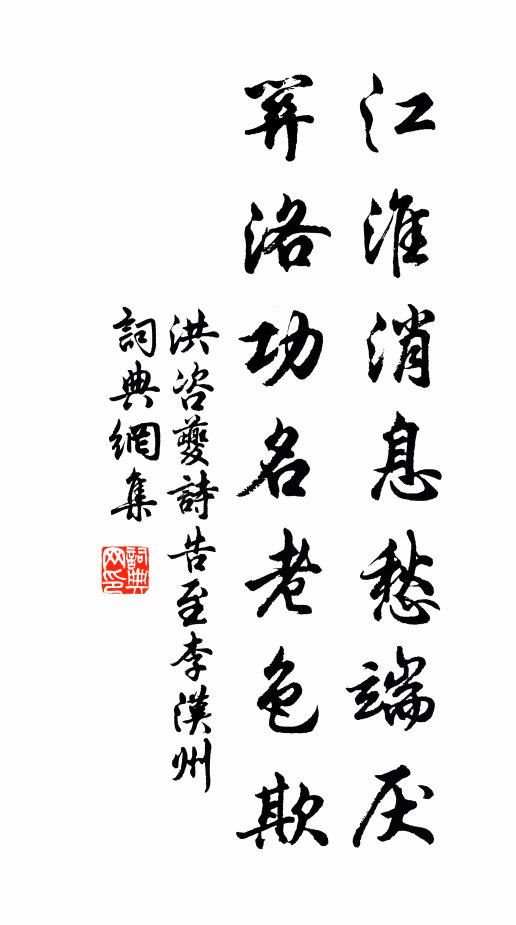 江淮消息愁端厌
羿洛功名老色欺
洪咨夔詩告至李漢州
詞典網集
詞典网印